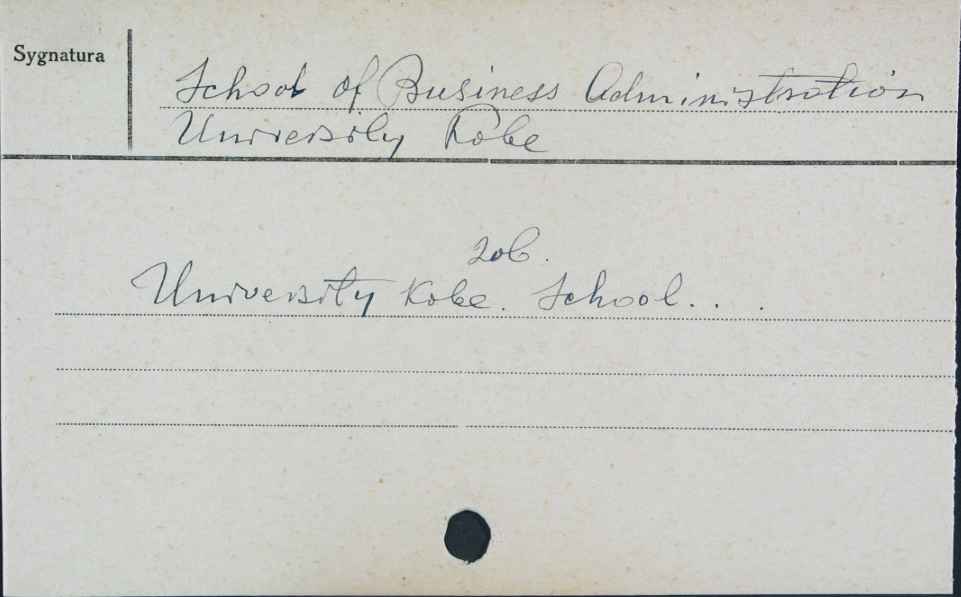 Sygnatura
School of Business Administration
University Kobe
zob.
University Kobe. School...